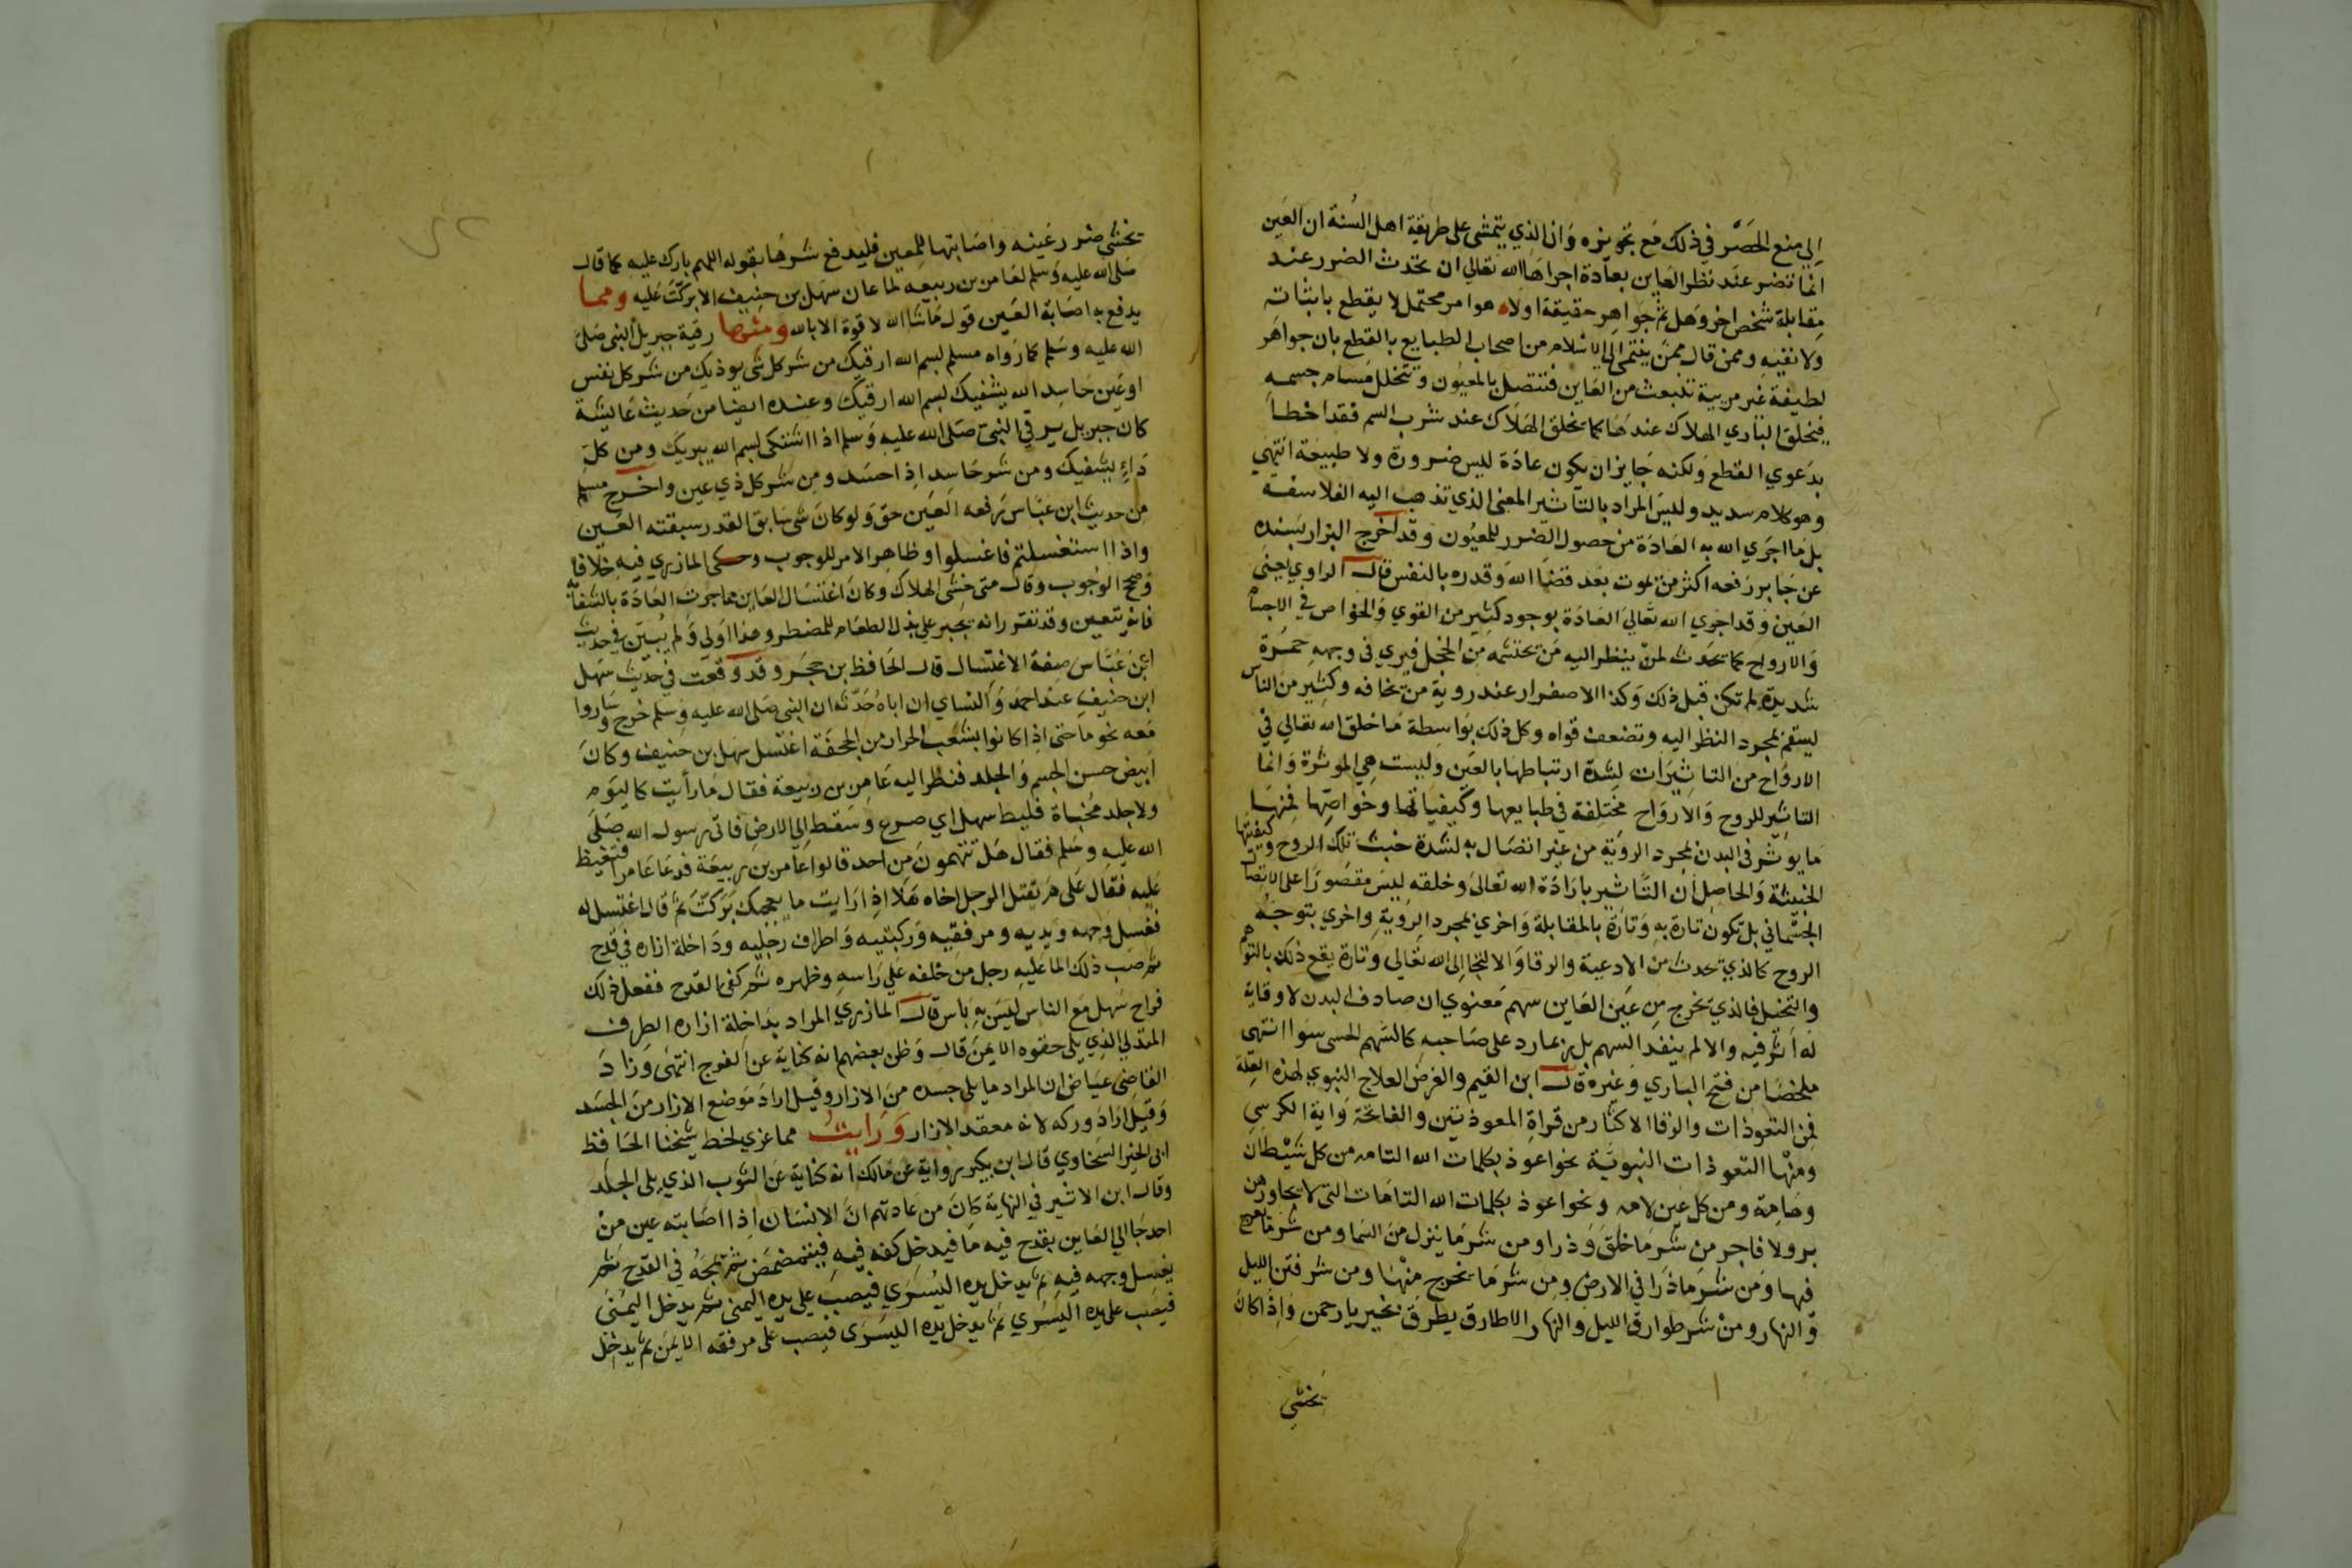 الى منع الحصر في ذلك مع تجويزه وان الذي يتمشى على طريقة اهل السنة ان العين
انما تضر عند نظر العاين بعادة اجراها الله تعالى ان يحدث الضرر عند
مقابلة شخص اخر وهل ثم جواهر حقيقة اولا هو امر محتمل لا يقطع باثباته
ولا نفيه وممن قال ممن ينتمى الى الاسلام من اصحاب الطبايع بالقطع بان جواهر
لطيفة غير مريية تنبعث من العاين فتتصل بالمعيون وتتخلل مسام جسمه
فيخلق الباري الهلاك عندها كما يخلق الهلاك عند شرب السم فقد اخطا
بدعوي القطع ولكنه جايز ان يكون عادة ليس ضرورة ولا طبيعة انتهي
وهو كلام سديد وليس المراد بالتاثير المعنى الذي تذهب اليه الفلاسفه
بل ما اجري الله به العادة من حصول الضرر للمعيون وقد اخرج البزار بسنده
عن جابر رفعه اكثر من يموت بعد قضا الله وقدره بالنفس قال الراوي يعنى
العين وقد اجري الله تعالى العادة بوجود كثير من القوي والخواص في الاجسام
والارواح كما يحدث لمن ينظر اليه من يحتشمه من الخجل فيري في وجهه حمرة
شديدة لم تكن قبل ذلك وكذا الاصفرار عند روية من يخافه وكثير من الناس
يسقم بمجرد النظر اليه وتضعف قواه وكل ذلك بواسطة ما خلق الله تعالى في
الارواح من التاثيرات لشدة ارتباطها بالعين وليست هي الموثرة وانما
التاثير للروح والارواح مختلفة في طبايعها وكيفياتها وخواصها فمنها
ما يوثر في البدن بمجرد الروية من غير اتصال به لشدة خبث تلك الروح وكيفيتها
الخبيثة والحاصل ان التاثير بارادة الله تعالى وخلقه ليس مقصورا على الاتصال
الجسماني بل تكون تارة به وتارة بالمقابلة واخري بمجرد الروية واخري بتوجه
الروح كالذي يحدث من الادعية والرقا والالتجا الى الله تعالى وتارة يقع ذلك بالتوهم
والتخيل فالذي يخرج من عين العاين سهم معنوي ان صادف البدن لا وقاية
له اثر فيه والا لم ينفذ السهم بل ربما رد على صاحبه كالسهم الحسى سوا انتهى
ملخصا من فتح الباري وغيره قال ابن القيم والغرض العلاج النبوي لهذه العلة
فمن التعوذات والرقا الاكثار من قراة المعوذتين والفاتحة واية الكرسي
ومنها التعوذات النبوية نحو اعوذ بكلمات الله التامه من كل شيطان
وهامة ومن كل عين لامه ونحو اعوذ بكلمات الله التامات التى لا يجاوزهن
بر ولا فاجر من شر ما خلق وذرا ومن شر ما ينزل من السما ومن شر ما يعرج
فيها ومن شر ما ذرا في الارض ومن شر ما يخرج منها ومن شر فتن الليل
والنهار ومن شر طوارق الليل والنهار الا طارق يطرق بخير يا رحمن واذا كان
يخشي
يخشى ضرر عينه واصابتها للمعين فليدفع شرها بقوله اللهم بارك عليه كما قال
صلى الله عليه وسلم لعامر بن ربيعه لما عان سهل بن حنيف الا بركت عليه ومما
يدفع به اصابة العين قول ما شا الله لا قوة الا بالله ومنها رقية جبريل النبى صلى
الله عليه وسلم كما رواه مسلم بسم الله ارقيك من شر كل شى يوذيك من شر كل نفس
او عين حاسد الله يشفيك بسم الله ارقيك وعنده ايضا من حديث عايشة
كان جبريل يرقي النبى صلى الله عليه وسلم اذا اشتكى بسم الله يبريك ومن كل
داء يشفيك ومن شر حاسد اذا حسد ومن شر كل ذي عين واخرج مسلم
من حديث ابن عباس رفعه العين حق ولو كان شى سابق القدر سبقته العين
واذا استغسلتم فاغسلوا وظاهر الامر للوجوب وحكى المازري فيه خلافا
وصحح الوجوب وقال متى خشى الهلاك وكان اغتسال العاين مما جرت العادة بالشفا به
فانه يتعين وقد تقرر انه يجبر على بذل الطعام للمضطر وهذا اولى ولم يبين في حديث
ابن عباس صفة الاغتسال قال الحافظ بن حجر وقد وقعت في حديث سهل
ابن حنيف عند احمد والنساي ان اباه حدثه ان النبى صلى الله عليه وسلم خرج وساروا
معه نحو ما حتى اذا كانوا بشعب الحرار من الجحفة اغتسل سهل بن حنيف وكان
ابيض حسن الجسم والجلد فنظر اليه عامر بن ربيعة فقال ما رأيت كاليوم
ولا جلد مخباة فليط سهل اي صرع وسقط الى الارض فاتى رسول الله صلى
الله عليه وسلم فقال هل تتهمون من احد قالوا عامر بن ربيعة فدعا عامرا فتغيظ
عليه فقال على م يقتل الرجل اخاه هلا اذا رايت ما يعجبك بركت ثم قال اغتسل له
فغسل وجهه ويديه ومرفقيه وركبتيه واطراف رجليه وداخلة ازاره في قدح
ثم صب ذلك الما عليه رجل من خلفه على راسه وظهره ثم كفى القدح ففعل ذلك
فراح سهل مع الناس ليس به باس قال المازري المراد بداخلة ازاره الطرف
المتدلي الذي يلى حقوه الايمن قال وظن بعضهم انه كناية عن الفرج انتهى وزاد
القاضى عياض ان المراد ما يلى جسده من الازار وقيل اراد موضع الازار من الجسد
وقيل اراد وركه لانه معقد الازار ورايت مما عزي لخط شيخنا الحافظ
ابى الخير السخاوي قال ابن بكير رواية عن مالك انه كناية عن الثوب الذي يلى الجلد
وقال ابن الاثير في النهاية كان من عادتهم ان الانسان اذا اصابته عين من
احد جا الى العاين بقدح فيه ما فيدخل كفه فيه فيتمضمض ثم يمجه في القدح ثم
يغسل وجهه فيه ثم يدخل يده اليسري فيصب على يده اليمنى ثم يدخل اليمنى
فيصب على يده اليسري ثم يدخل يده اليسرى فيصب على مرفقه الايمن ثم يدخل